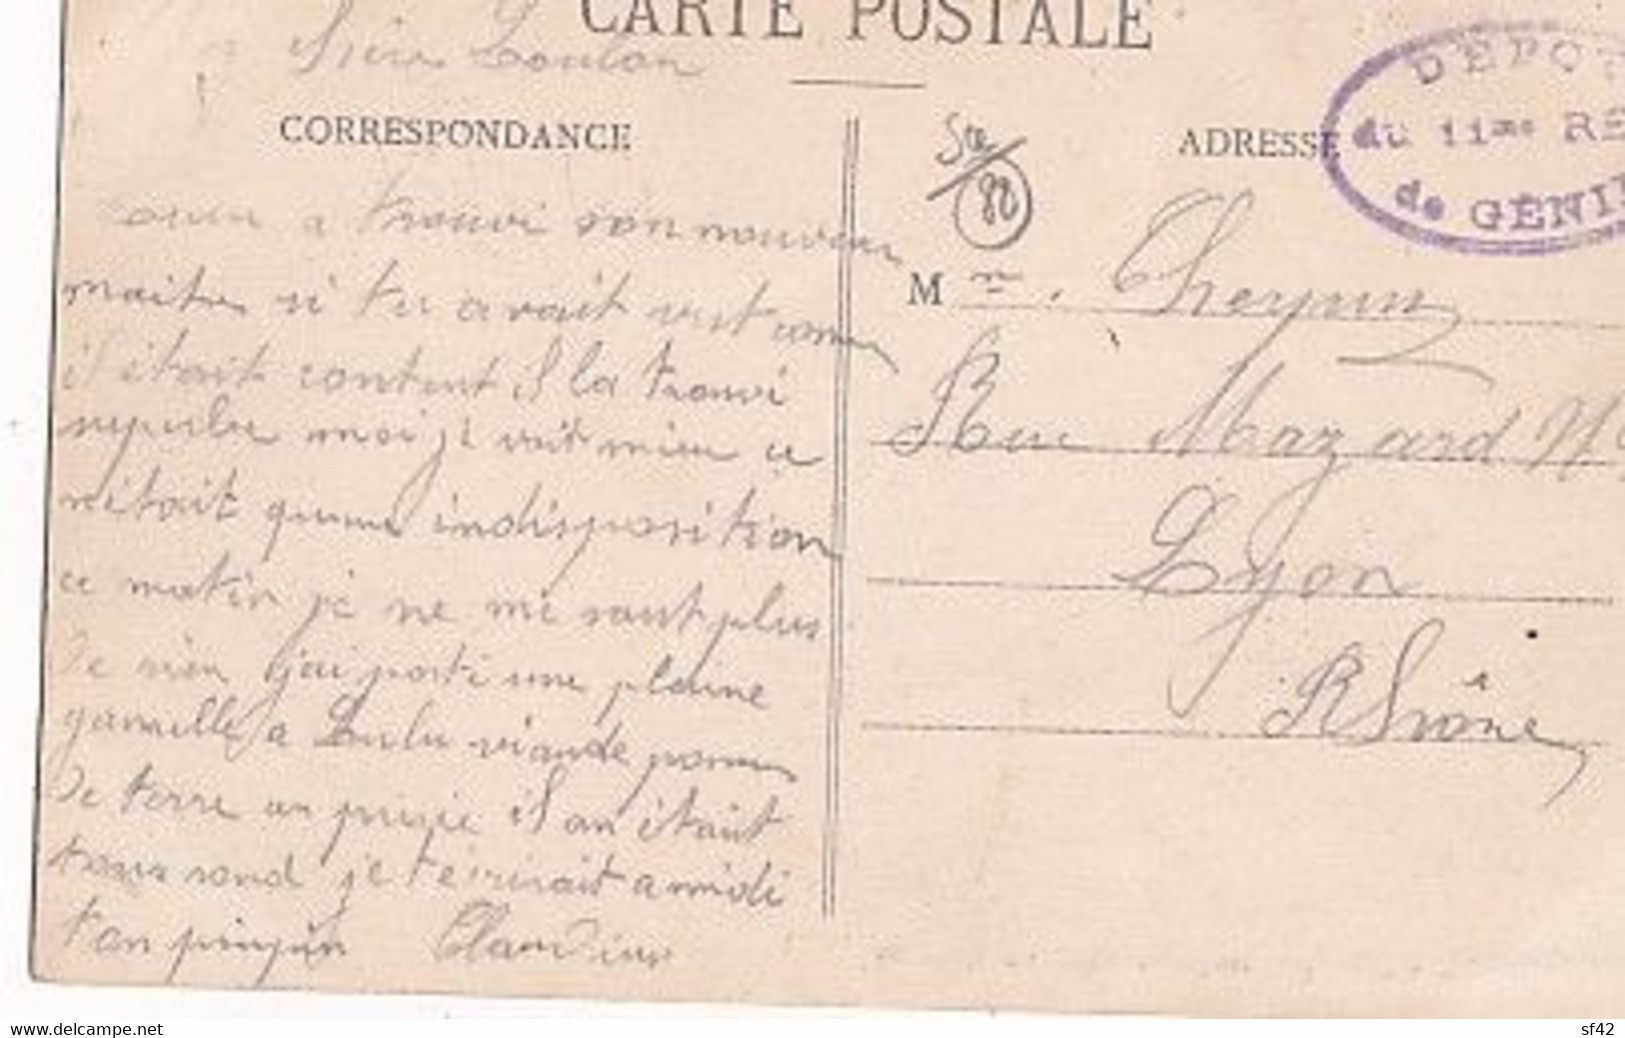 CARTE POSTALE
CORRESPONDANCE
ADRESSE
DEPOT
du 11me RE
de GENI
88
a trouvi son nouveau
maitre si tu avait vut comme
il était content il la trouvi
superbe moi je vait mieu ce
nétait quune indisposition
ce matin je ne me sant plus
de rien j'ai porti une plaine
gamelle a Lulu viande pommes
de terre an puriee il an était
tous rond je técrirait a midi
ton pinpin Claudius
M
Rue Mazard N
Lyon
Rhône
delcampe.net
sf42